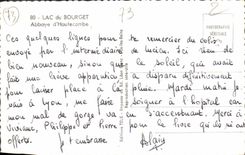 80 - LAC du BOURGET
Abbaye d'Hautecombe
Ces quelques lignes pour te
envoyé par l'intermédiaire
bien nouveau, sinon que
fait une brève apparition
pour laisser place à la
vais à Lyon, me faire
mon mal de gorge va
vivrais, Philippe et Pierre
offerte. Je t'embrasse
remercier du colis
de lucien. Ici rien de
le soleil, qui avait
a disparu définitivement
pluie. Mardi matin je
soigner à l'hôpital car
en s'accentuant. Merci à
pour la livre qu'ils m'ont
Alain